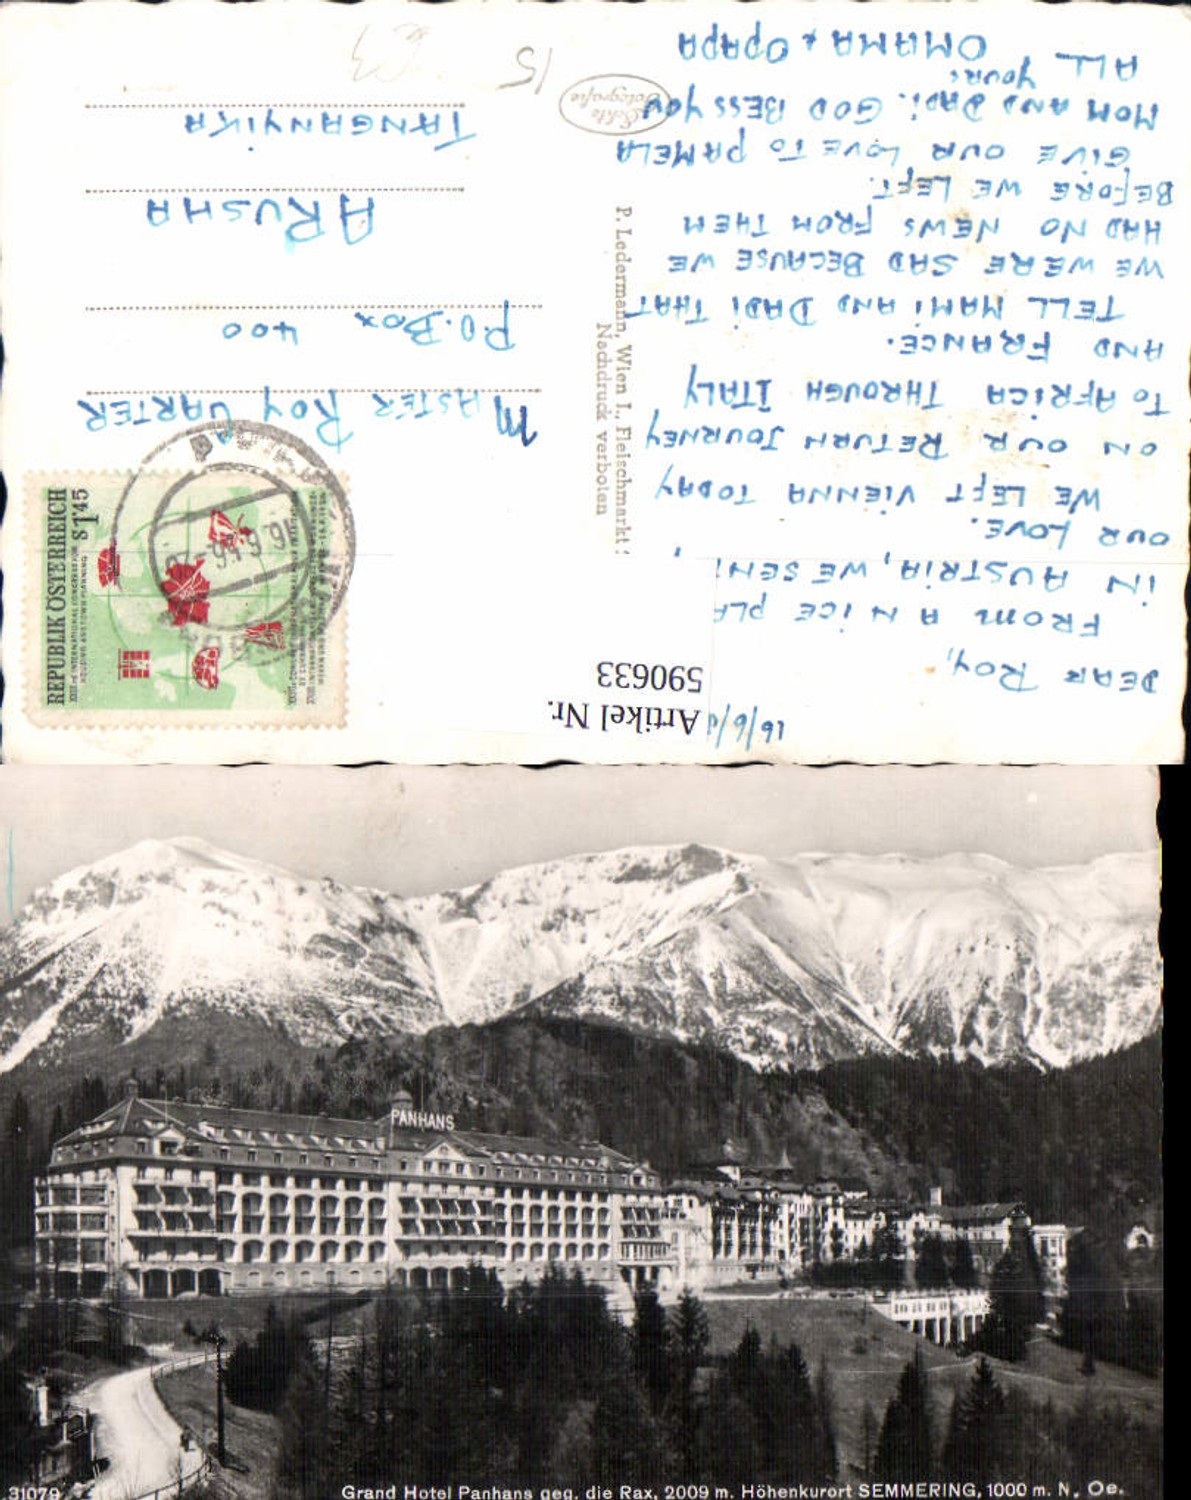 16/6/
Artikel Nr.
590633
DEAR ROY,
FROM A NICE PLA
IN AUSTRIA, WE SEN
OUR LOVE.
WE LEFT VIENNA TODAY
ON OUR RETURN JOURNEY
TO AFRICA THROUGH ITALY
AND FRANCE.
TELL MAMI AND DADI THAT
WE WERE SAD BECAUSE WE
HAD NO NEWS FROM THEM
BEFORE WE LEFT.
GIVE OUR LOVE TO PAMELA
MOM AND DADI. GOD BESS YOU
ALL YOUR:
OMAMA + OPAPA
P. Ledermann, Wien I., Fleischmarkt
Nachdruck verboten
Echte
Fotografie
REPUBLIK ÖSTERREICH
S 1.45
XXIII-d INTERNATIONAL CONGRESS FOR
HOUSING AND TOWN PLANNING
MASTER ROY CARTER
P.O. BOX 400
ARUSHA
TANGANYIKA
15
PANHANS
31079
Grand Hotel Panhans geg. die Rax, 2009 m. Höhenkurort SEMMERING, 1000 m. N. Oe.